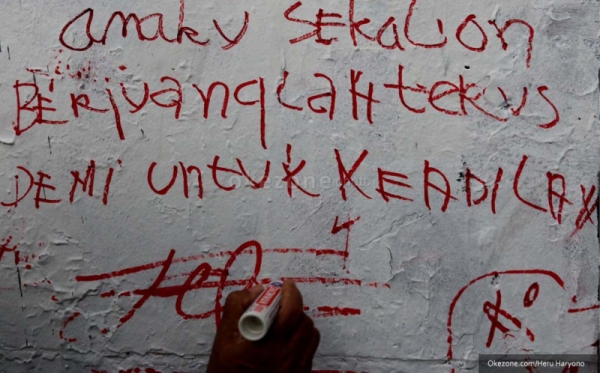 anaku SEKALION
BERjuangLAH tekus
DEMI untuk KEADILAN
okezone
Okezone.com/Heru Haryono